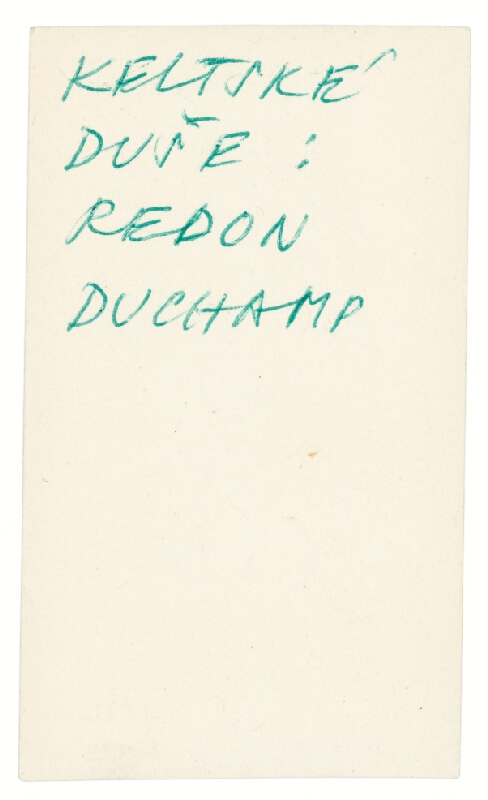 KELTSKÉ
DUŠE :
REDON
DUCHAMP